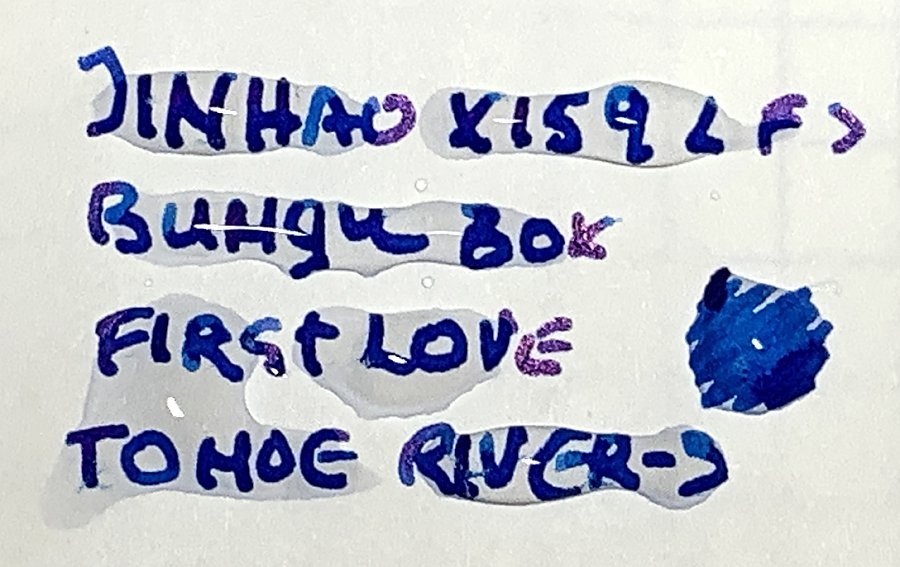 JINHAO X159 <F>
BUNGU BOX
FIRST LOVE
TOMOE RIVER-S